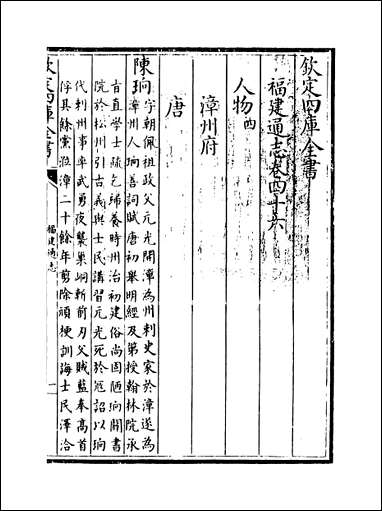 欽定四庫全書
福建通志卷四十六
人物四
漳州府
唐
陳珦字朝佩祖政父元光開漳為州刺史家於漳遂為
漳州人珦善詞賦唐初舉明經及第授翰林院承
旨直學士疏乞歸養時州治初建俗尚固陋珦開書
院於松州引古義與士民講習元光死於寇詔以珦
代刺州事率武勇夜襲巢峒斬前刃父賊藍奉高首
俘其餘黨蒞漳二十餘年剪除頑梗訓誨士民澤洽
欽定四庫全書
福建通志
一